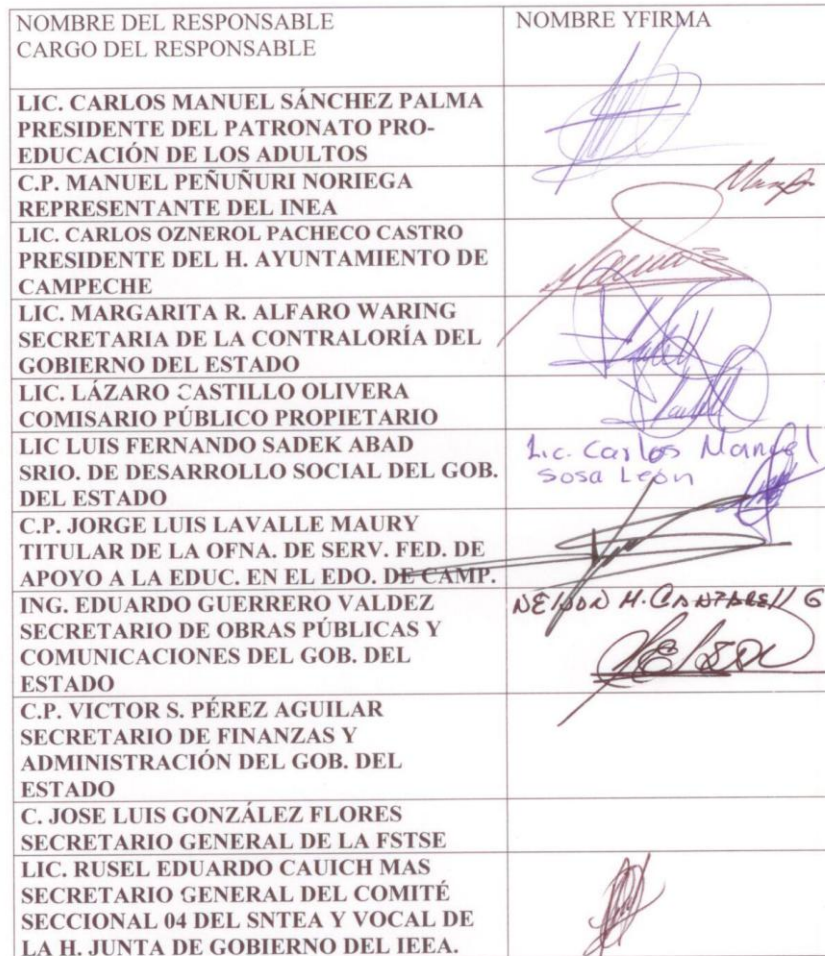 NOMBRE DEL RESPONSABLE
CARGO DEL RESPONSABLE
NOMBRE YFIRMA
LIC. CARLOS MANUEL SÁNCHEZ PALMA
PRESIDENTE DEL PATRONATO PRO-
EDUCACIÓN DE LOS ADULTOS
C.P. MANUEL PEÑUÑURI NORIEGA
REPRESENTANTE DEL INEA
LIC. CARLOS OZNEROL PACHECO CASTRO
PRESIDENTE DEL H. AYUNTAMIENTO DE
CAMPECHE
LIC. MARGARITA R. ALFARO WARING
SECRETARIA DE LA CONTRALORÍA DEL
GOBIERNO DEL ESTADO
LIC. LÁZARO CASTILLO OLIVERA
COMISARIO PÚBLICO PROPIETARIO
LIC LUIS FERNANDO SADEK ABAD
SRIO. DE DESARROLLO SOCIAL DEL GOB.
DEL ESTADO
Lic. Carlos Manuel
Sosa León
C.P. JORGE LUIS LAVALLE MAURY
TITULAR DE LA OFNA. DE SERV. FED. DE
APOYO A LA EDUC. EN EL EDO. DE CAMP.
ING. EDUARDO GUERRERO VALDEZ
SECRETARIO DE OBRAS PÚBLICAS Y
COMUNICACIONES DEL GOB. DEL
ESTADO
NELSON H. CANTARELL G
C.P. VICTOR S. PÉREZ AGUILAR
SECRETARIO DE FINANZAS Y
ADMINISTRACIÓN DEL GOB. DEL
ESTADO
C. JOSE LUIS GONZÁLEZ FLORES
SECRETARIO GENERAL DE LA FSTSE
LIC. RUSEL EDUARDO CAUICH MAS
SECRETARIO GENERAL DEL COMITÉ
SECCIONAL 04 DEL SNTEA Y VOCAL DE
LA H. JUNTA DE GOBIERNO DEL IEEA.